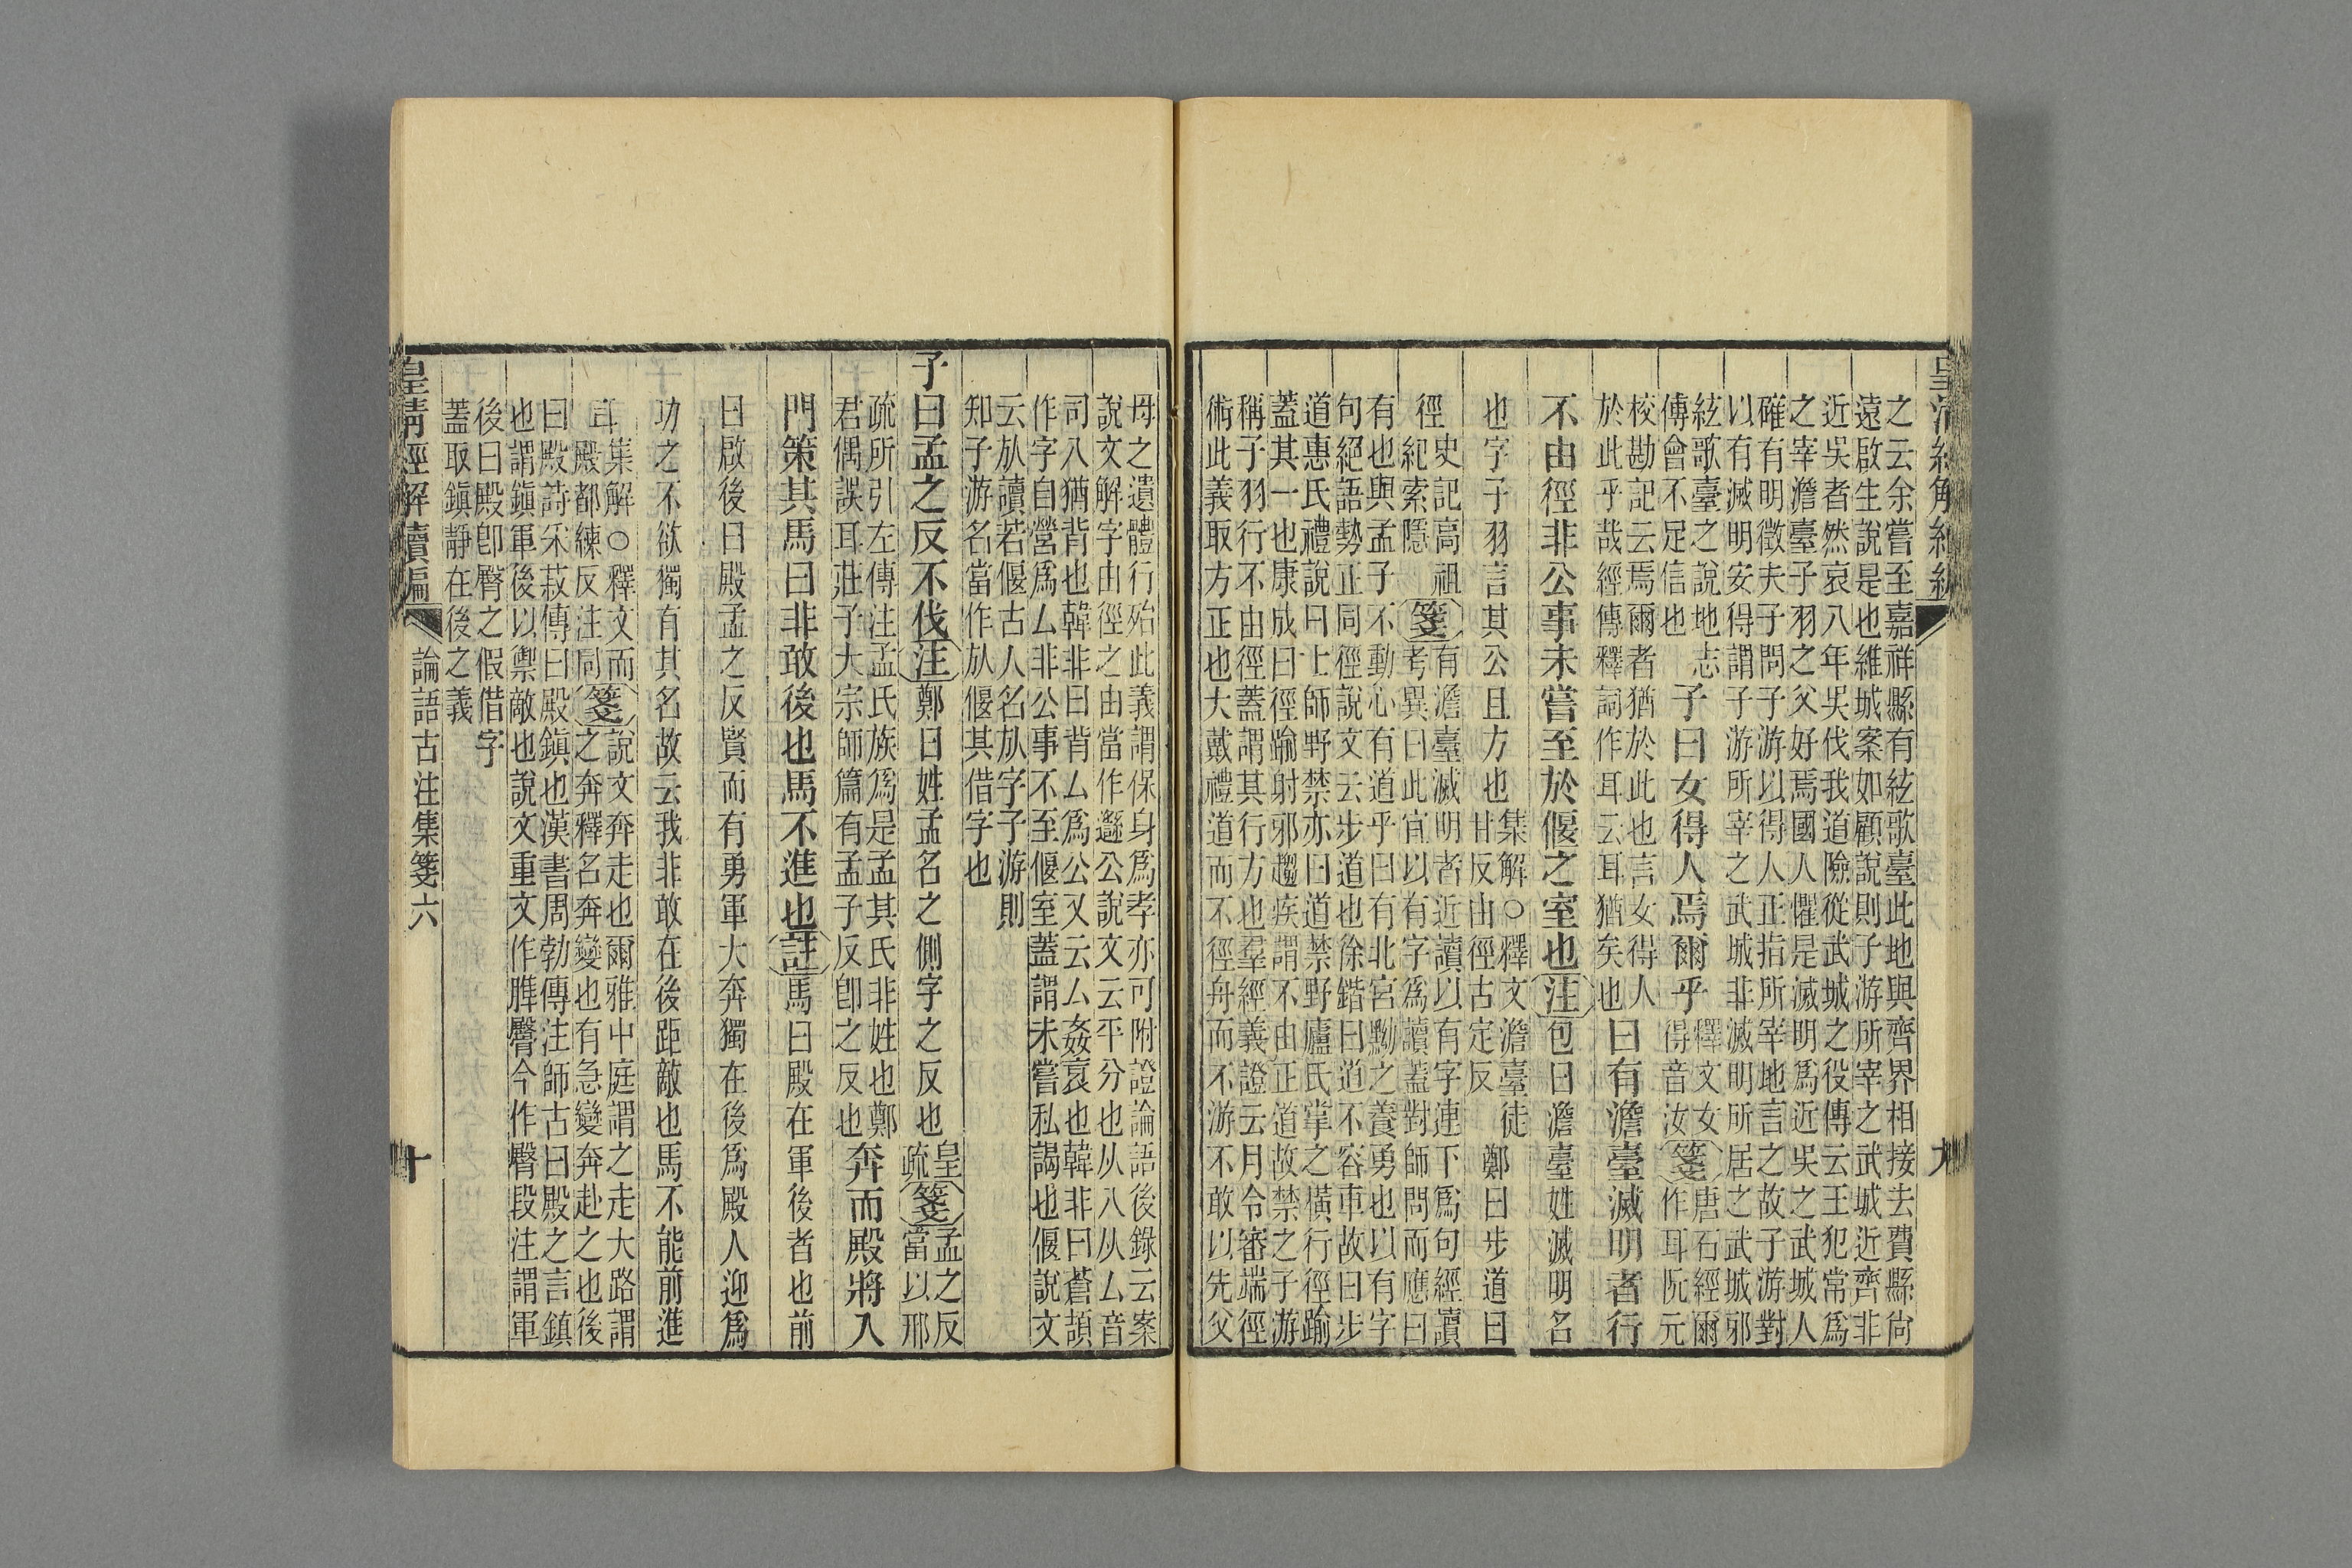 皇清經解續編
之云余嘗至嘉祥縣有絃歌臺此地與齊界相接去費縣尙
遠啟生說是也維城案如顧說則子游所宰之武城近齊非
近吳者然哀八年吳伐我道險從武城之役傳云王犯常爲
之宰澹臺子羽之父好焉國人懼是滅明爲近吳之武城人
確有明徵夫子問子游以得人正指所宰地言之故子游對
以有滅明安得謂子游所宰之武城非滅明所居之武城邪
絃歌臺之說地志
傳會不足信也
子曰女得人焉爾乎
釋文女
得音汝
箋
唐石經爾
作耳阮元
校勘記云焉爾者猶於此也言女得人
於此乎哉經傳釋詞作耳云耳猶矣也
曰有澹臺滅明者行
不由徑非公事未嘗至於偃之室也注包曰澹臺姓滅明名
也字子羽言其公且方也
集解○釋文澹臺徒
甘反由徑古定反
鄭曰步道曰
徑
史記高祖
紀索隱
箋
有澹臺滅明者近讀以有字連下爲句經讀
考異曰此宜以有字爲讀蓋對師問而應曰
有也與孟子不動心有道乎曰有北宮黝之養勇也以有字
句絕語勢正同徑說文云步道也徐鍇曰道不容車故曰步
道惠氏禮說曰上師野禁亦曰道禁野廬氏掌之橫行徑踰
蓋其一也康成曰徑踰射邪趨疾謂不由正道故禁之子游
稱子羽行不由徑蓋謂其行方也羣經義證云月令審端徑
術此義取方正也大戴禮道而不徑舟而不游不敢以先父
母之遺體行殆此義謂保身爲孝亦可附證論語後錄云案
說文解字由徑之由當作䍃公說文云平分也从八从厶音
司八猶背也韓非曰背厶爲公又云厶姦衺也韓非曰蒼頡
作字自營爲厶非公事不至偃室蓋謂未嘗私謁也偃說文
云㫃讀若偃古人名㫃字子游則
知子游名當作㫃偃其借字也
子曰孟之反不伐注鄭曰姓孟名之側字之反也
皇
疏
箋
孟之反
當以邢
疏所引左傳注孟氏族爲是孟其氏非姓也鄭
君偶誤耳莊子大宗師篇有孟子反卽之反也
奔而殿將入
門策其馬曰非敢後也馬不進也註馬曰殿在軍後者也前
曰啟後曰殿孟之反賢而有勇軍大奔獨在後爲殿人迎爲
功之不欲獨有其名故云我非敢在後距敵也馬不能前進
耳
集解○釋文而
殿都練反注同
箋
說文奔走也爾雅中庭謂之走大路謂
之奔釋名奔變也有急變奔赴之也後
曰殿詩采菽傳曰殿鎭也漢書周勃傳注師古曰殿之言鎭
也謂鎭軍後以禦敵也說文重文作䏙臀今作臀段注謂軍
後曰殿卽臀之假借字
蓋取鎭靜在後之義
皇清經解續編
論語古注集箋六
十